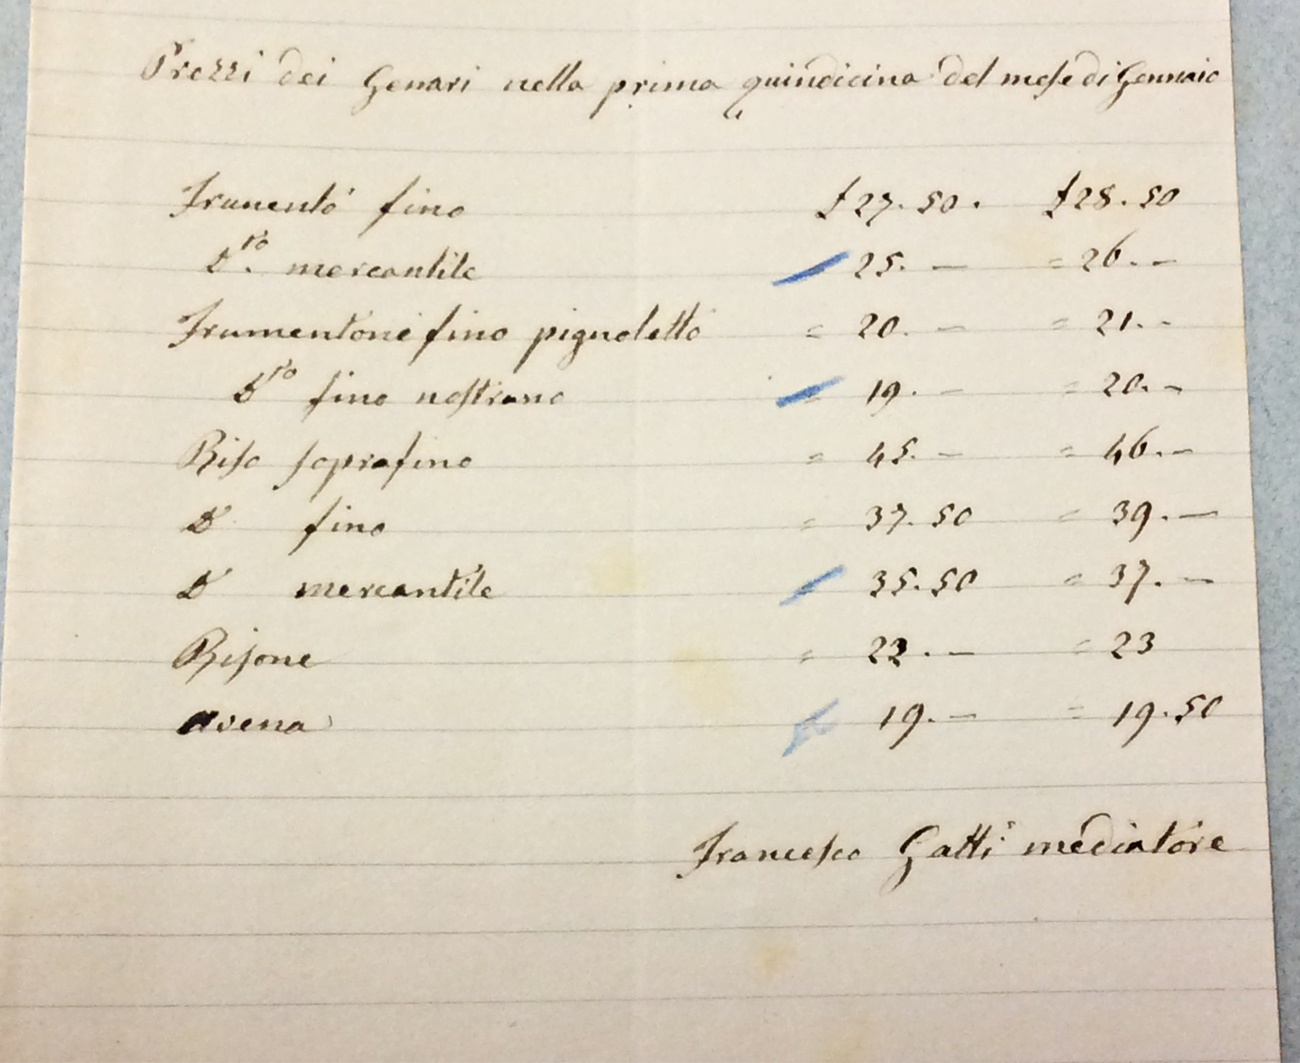 Prezzi dei Genari nella prima quindicina del mese di Gennaio
Frumento fino £ 27.50. £ 28.50
D.to mercantile 25.— = 26.—
Frumentone fino pignoletto = 20.— = 21.—
D.to fino nostrano = 19.— = 20.—
Riso soprafino = 45.— = 46.—
D fino = 37.50 = 39.—
D mercantile = 35.50 = 37.—
Risone = 22.— = 23
avena = 19.— = 19.50
Francesco Gatti mediatore